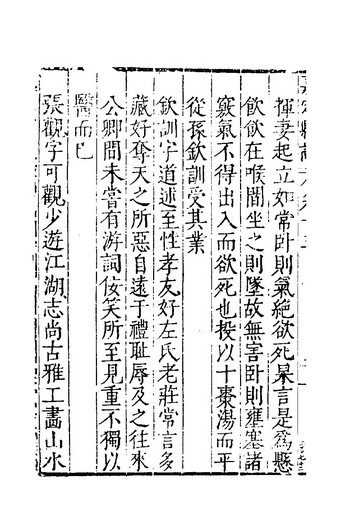 揮妻起立如常卧則氣絶欲死杲言是爲懸
飲飲在喉間坐之則墜故無害卧則壅塞諸
竅氣不得出入而欲死也投以十棗湯而平
從孫欽訓受其業
欽訓字道述至性孝友好左氏老莊常言多
藏好奪天之所惡自遠于禮耻辱及之往來
公卿間未嘗有游詞佞笑所至見重不獨以
醫而已
張觀字可觀少遊江湖志尚古雅工畵山水